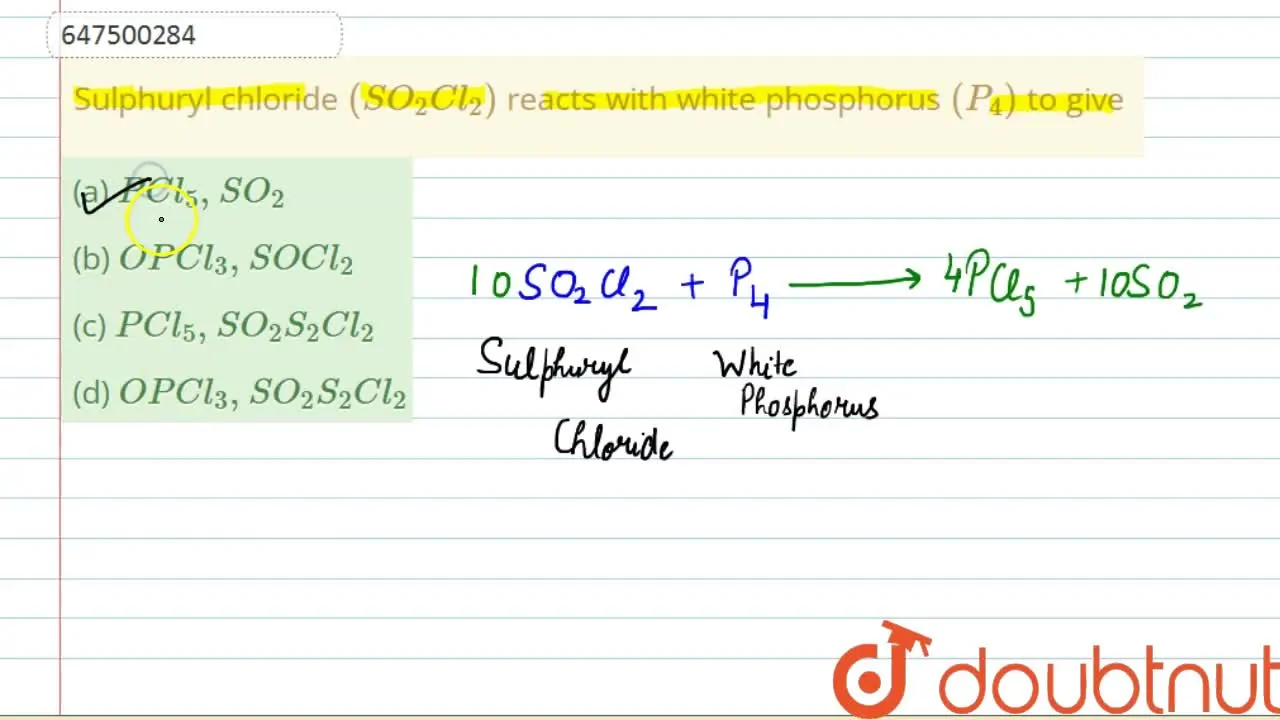 647500284
Sulphuryl chloride (SO₂Cl₂) reacts with white phosphorus (P₄) to give
(a) PCl₅, SO₂
(b) OPCl₃, SOCl₂
(c) PCl₅, SO₂S₂Cl₂
(d) OPCl₃, SO₂S₂Cl₂
10SO₂Cl₂ + P₄ ⟶ 4PCl₅ + 10SO₂
Sulphuryl White
Phosphorus
Chloride
doubtnut